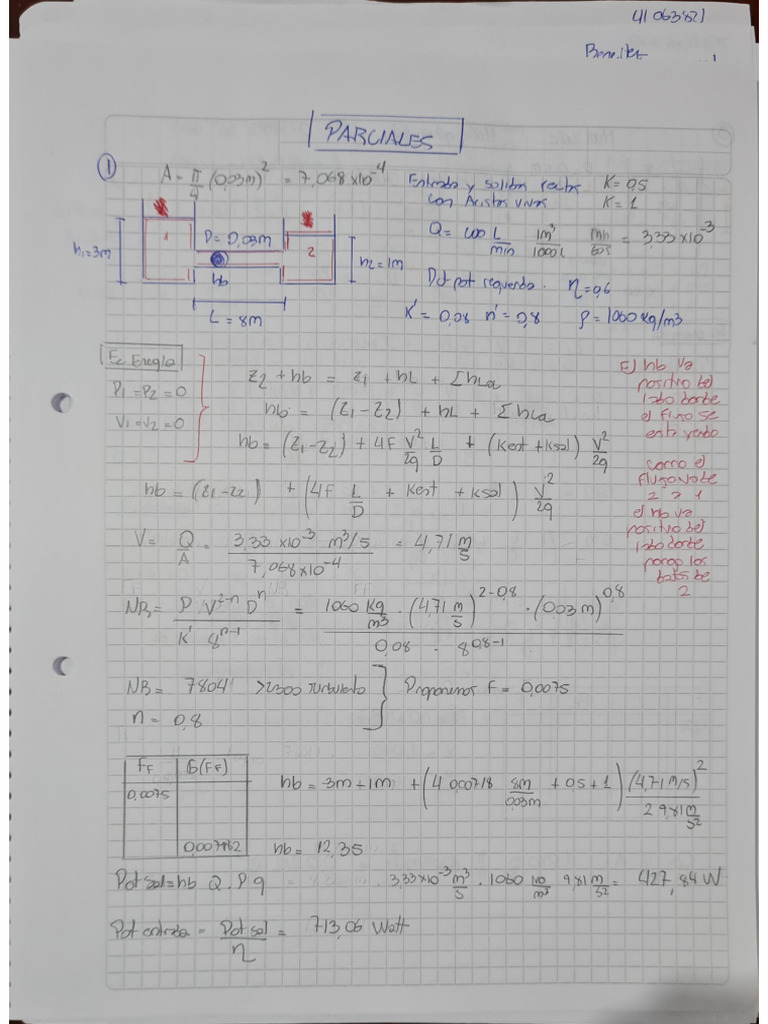 41063821
PARCIALES
1
A = π/4 (0,03m)² = 7,068 x10⁻⁴
Entrada y salidas rectas K = 0,5
con Aristas vivas K = 1
Q = 200 L/min 1m³/1000L min/60s = 3,33 x10⁻³
Dct pot requerida. η = 0,6
K' = 0,08 n' = 0,8 ρ = 1060 kg/m3
h₁=3m
1
D = 0,03m
2
h2 = 1m
hb
L = 8m
Ec Energia
P₁ = P₂ = 0
V₁ = V₂ = 0
Z₂ + hb = Z₁ + hL + Σ hLa
hb = (Z₁ - Z₂) + hL + Σ hLa
hb = (Z₁ - Z₂) + 4F V²/2g L/D + (Kent + Ksal) V²/2g
hb = (Z₁ - Z₂) + (4F L/D + Kent + Ksal) V²/2g
El hb va
positivo del
lado donde
el fluso se
esta yendo
como el
flugo va de
2 → 1
el hb va
positivo del
lado donde
pongo los
datos de
2
V = Q/A = 3,33 x10⁻³ m³/s / 7,068 x10⁻⁴ = 4,71 m/s
NR = ρ V²⁻ⁿ Dⁿ / K' 8ⁿ⁻¹ = 1060 kg/m³ · (4,71 m/s)²⁻⁰'⁸ · (0,03m)⁰'⁸ / 0,08 · 8⁰'⁸⁻¹
NR = 7804 > 2300 Turbulento
n = 0,8
Proponemos F = 0,0075
Ff G(Ff)
0,0075
hb = 3m - 1m + (4 0,00718 8m/0,03m + 0,5 + 1) (4,71 m/s)²/2 9,81 m/s²
hb = 12,35
Pot sal = hb Q · ρ g = · 3,33 x10⁻³ m³/s · 1060 kg/m³ 9,81 m/s² = 427,84 W
Pot entrada = Pot sal/η = 713,06 Watt